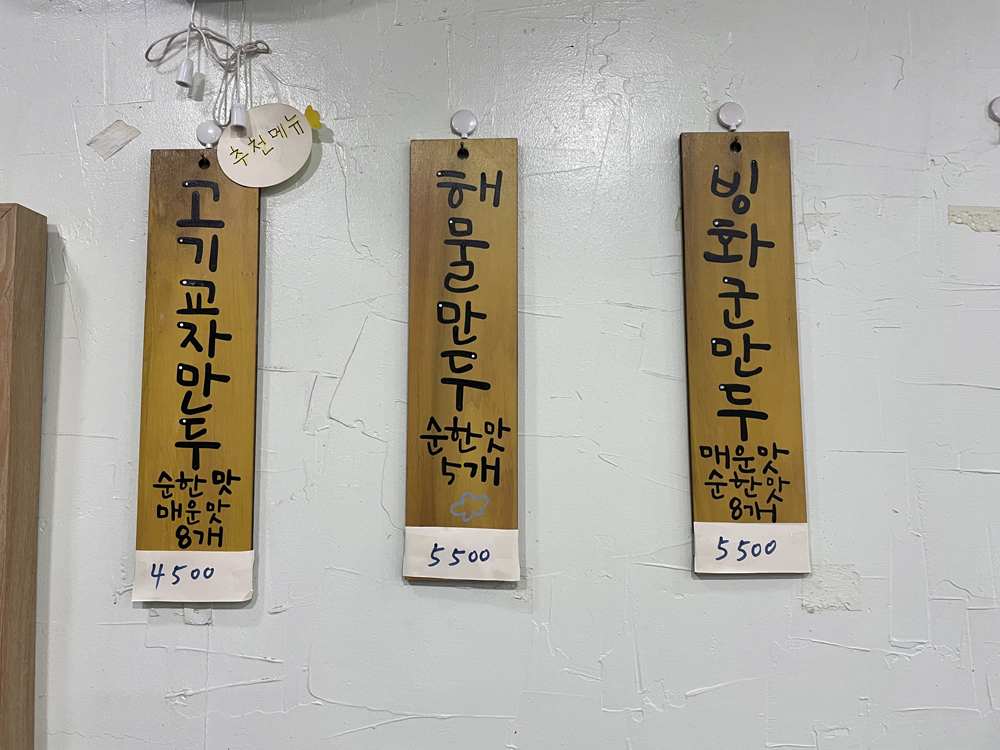 추천메뉴
고기교자만두
순한맛
매운맛
8개
4500
해물만두
순한맛
5개
5500
빙화군만두
매운맛
순한맛
8개
5500